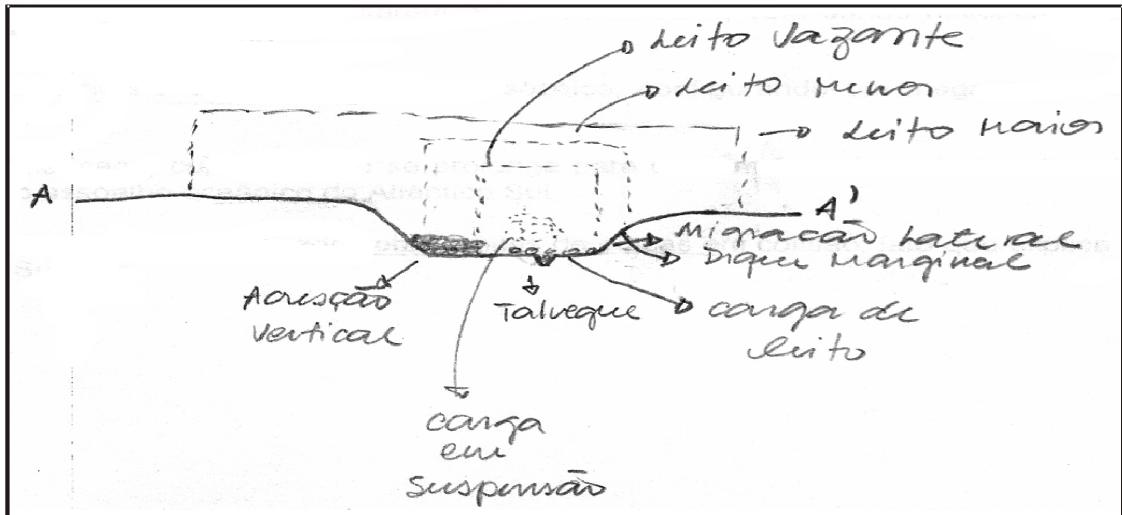 Leito Vazante
Leito Menor
Leito Maior
A
A'
Migração Lateral
Dique Marginal
Acresção
Vertical
Talvegue
carga de
leito
carga
em
suspensão